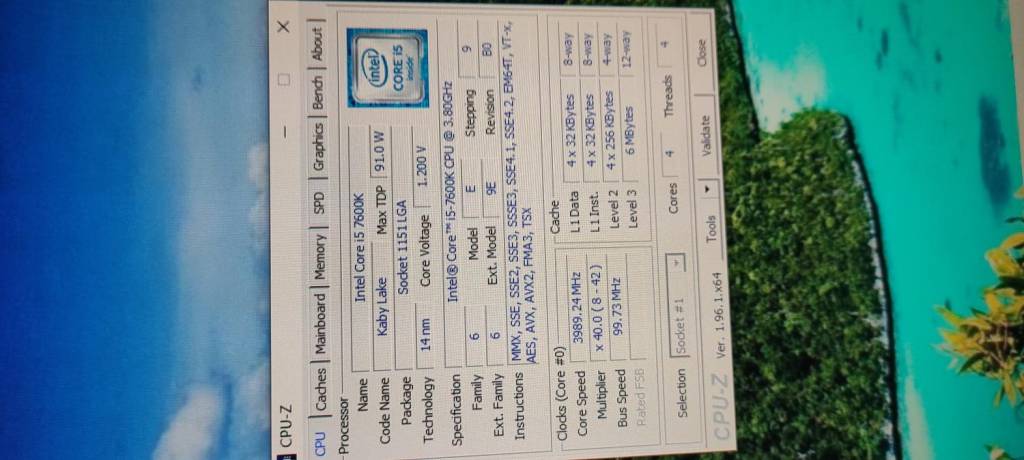 CPU-Z
CPU Caches Mainboard Memory SPD Graphics Bench About
Processor
Name Intel Core i5 7600K
Code Name Kaby Lake Max TDP 91.0 W
Package Socket 1151 LGA
Technology 14 nm Core Voltage 1.200 V
intel
CORE i5
inside
Specification Intel® Core™ i5-7600K CPU @ 3.80GHz
Family 6 Model E Stepping 9
Ext. Family 6 Ext. Model 9E Revision B0
Instructions MMX, SSE, SSE2, SSE3, SSSE3, SSE4.1, SSE4.2, EM64T, VT-x,
AES, AVX, AVX2, FMA3, TSX
Clocks (Core #0)
Core Speed 3989.24 MHz
Multiplier x 40.0 ( 8 - 42 )
Bus Speed 99.73 MHz
Rated FSB
Cache
L1 Data 4 x 32 KBytes 8-way
L1 Inst. 4 x 32 KBytes 8-way
Level 2 4 x 256 KBytes 4-way
Level 3 6 MBytes 12-way
Selection Socket #1 Cores 4 Threads 4
CPU-Z Ver. 1.96.1.x64 Tools Validate Close